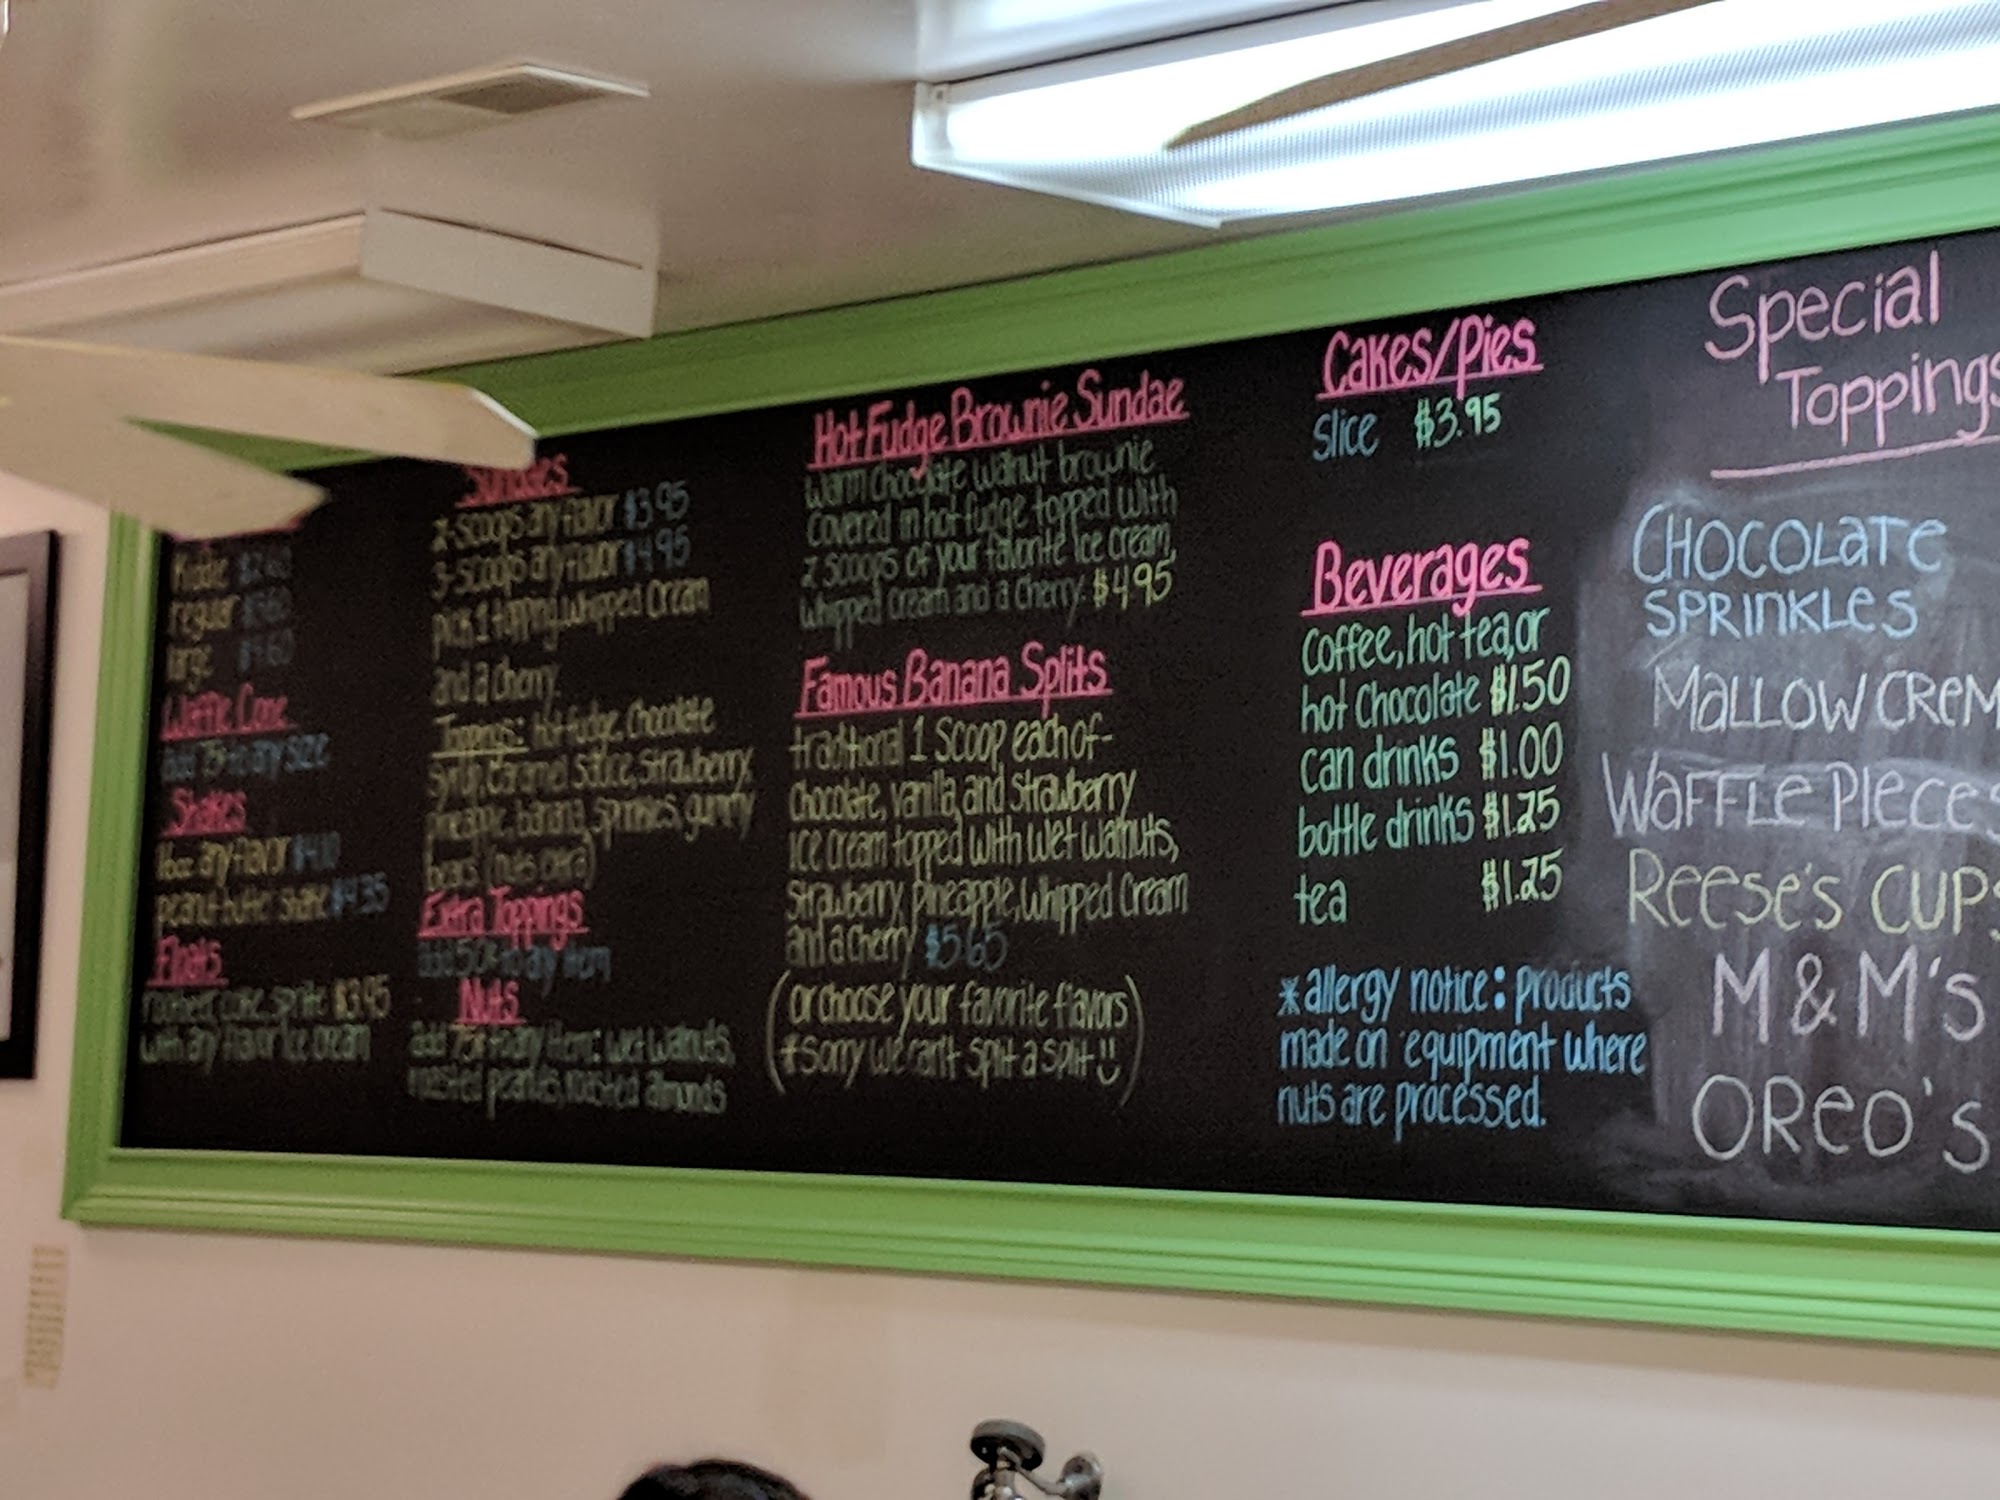 kiddie
regular
large
Waffle Cone
add 75¢ to any size
Shakes
16oz any flavor
peanut butter shake $4.35
Floats
rootbeer, coke, sprite $3.95
with any flavor ice cream
Sundaes
2-scoops any flavor $3.95
3-scoops any flavor $4.95
pick 1 topping, whipped cream
and a cherry.
Toppings: hot fudge, chocolate
syrup, caramel sauce, strawberry,
pineapple, banana, sprinkles, gummy
bears (nuts extra)
Extra Toppings
add 50¢ to any item
Nuts
add 75¢ to any item: wet walnuts,
roasted peanuts, roasted almonds
Hot Fudge Brownie Sundae
warm chocolate walnut brownie
covered in hot fudge topped with
2 scoops of your favorite ice cream,
whipped cream and a cherry. $4.95
Famous Banana Splits
traditional 1 scoop each of-
chocolate, vanilla, and strawberry
ice cream topped with wet walnuts,
strawberry, pineapple, whipped cream
and a cherry $5.65
(or choose your favorite flavors)
*sorry we can't split a split!!
Cakes/Pies
slice $3.95
Beverages
coffee, hot tea, or
hot chocolate $1.50
can drinks $1.00
bottle drinks $1.25
tea $1.25
*allergy notice: products
made on equipment where
nuts are processed.
Special
Toppings
CHOCOLATE
SPRINKLES
MALLOW CREM
WAFFLE PIECES
REESE'S CUPS
M & M'S
OREO'S